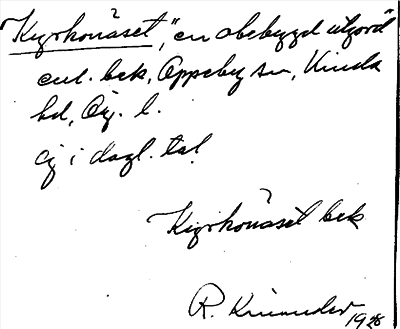 "Kyrkonäset", "en obebyggd utjord"
enl. bek, Oppeby sn, Kinda
hd, Ög. l.
ej i dagl. tal.
Kyrkonäset bek
R. 1928